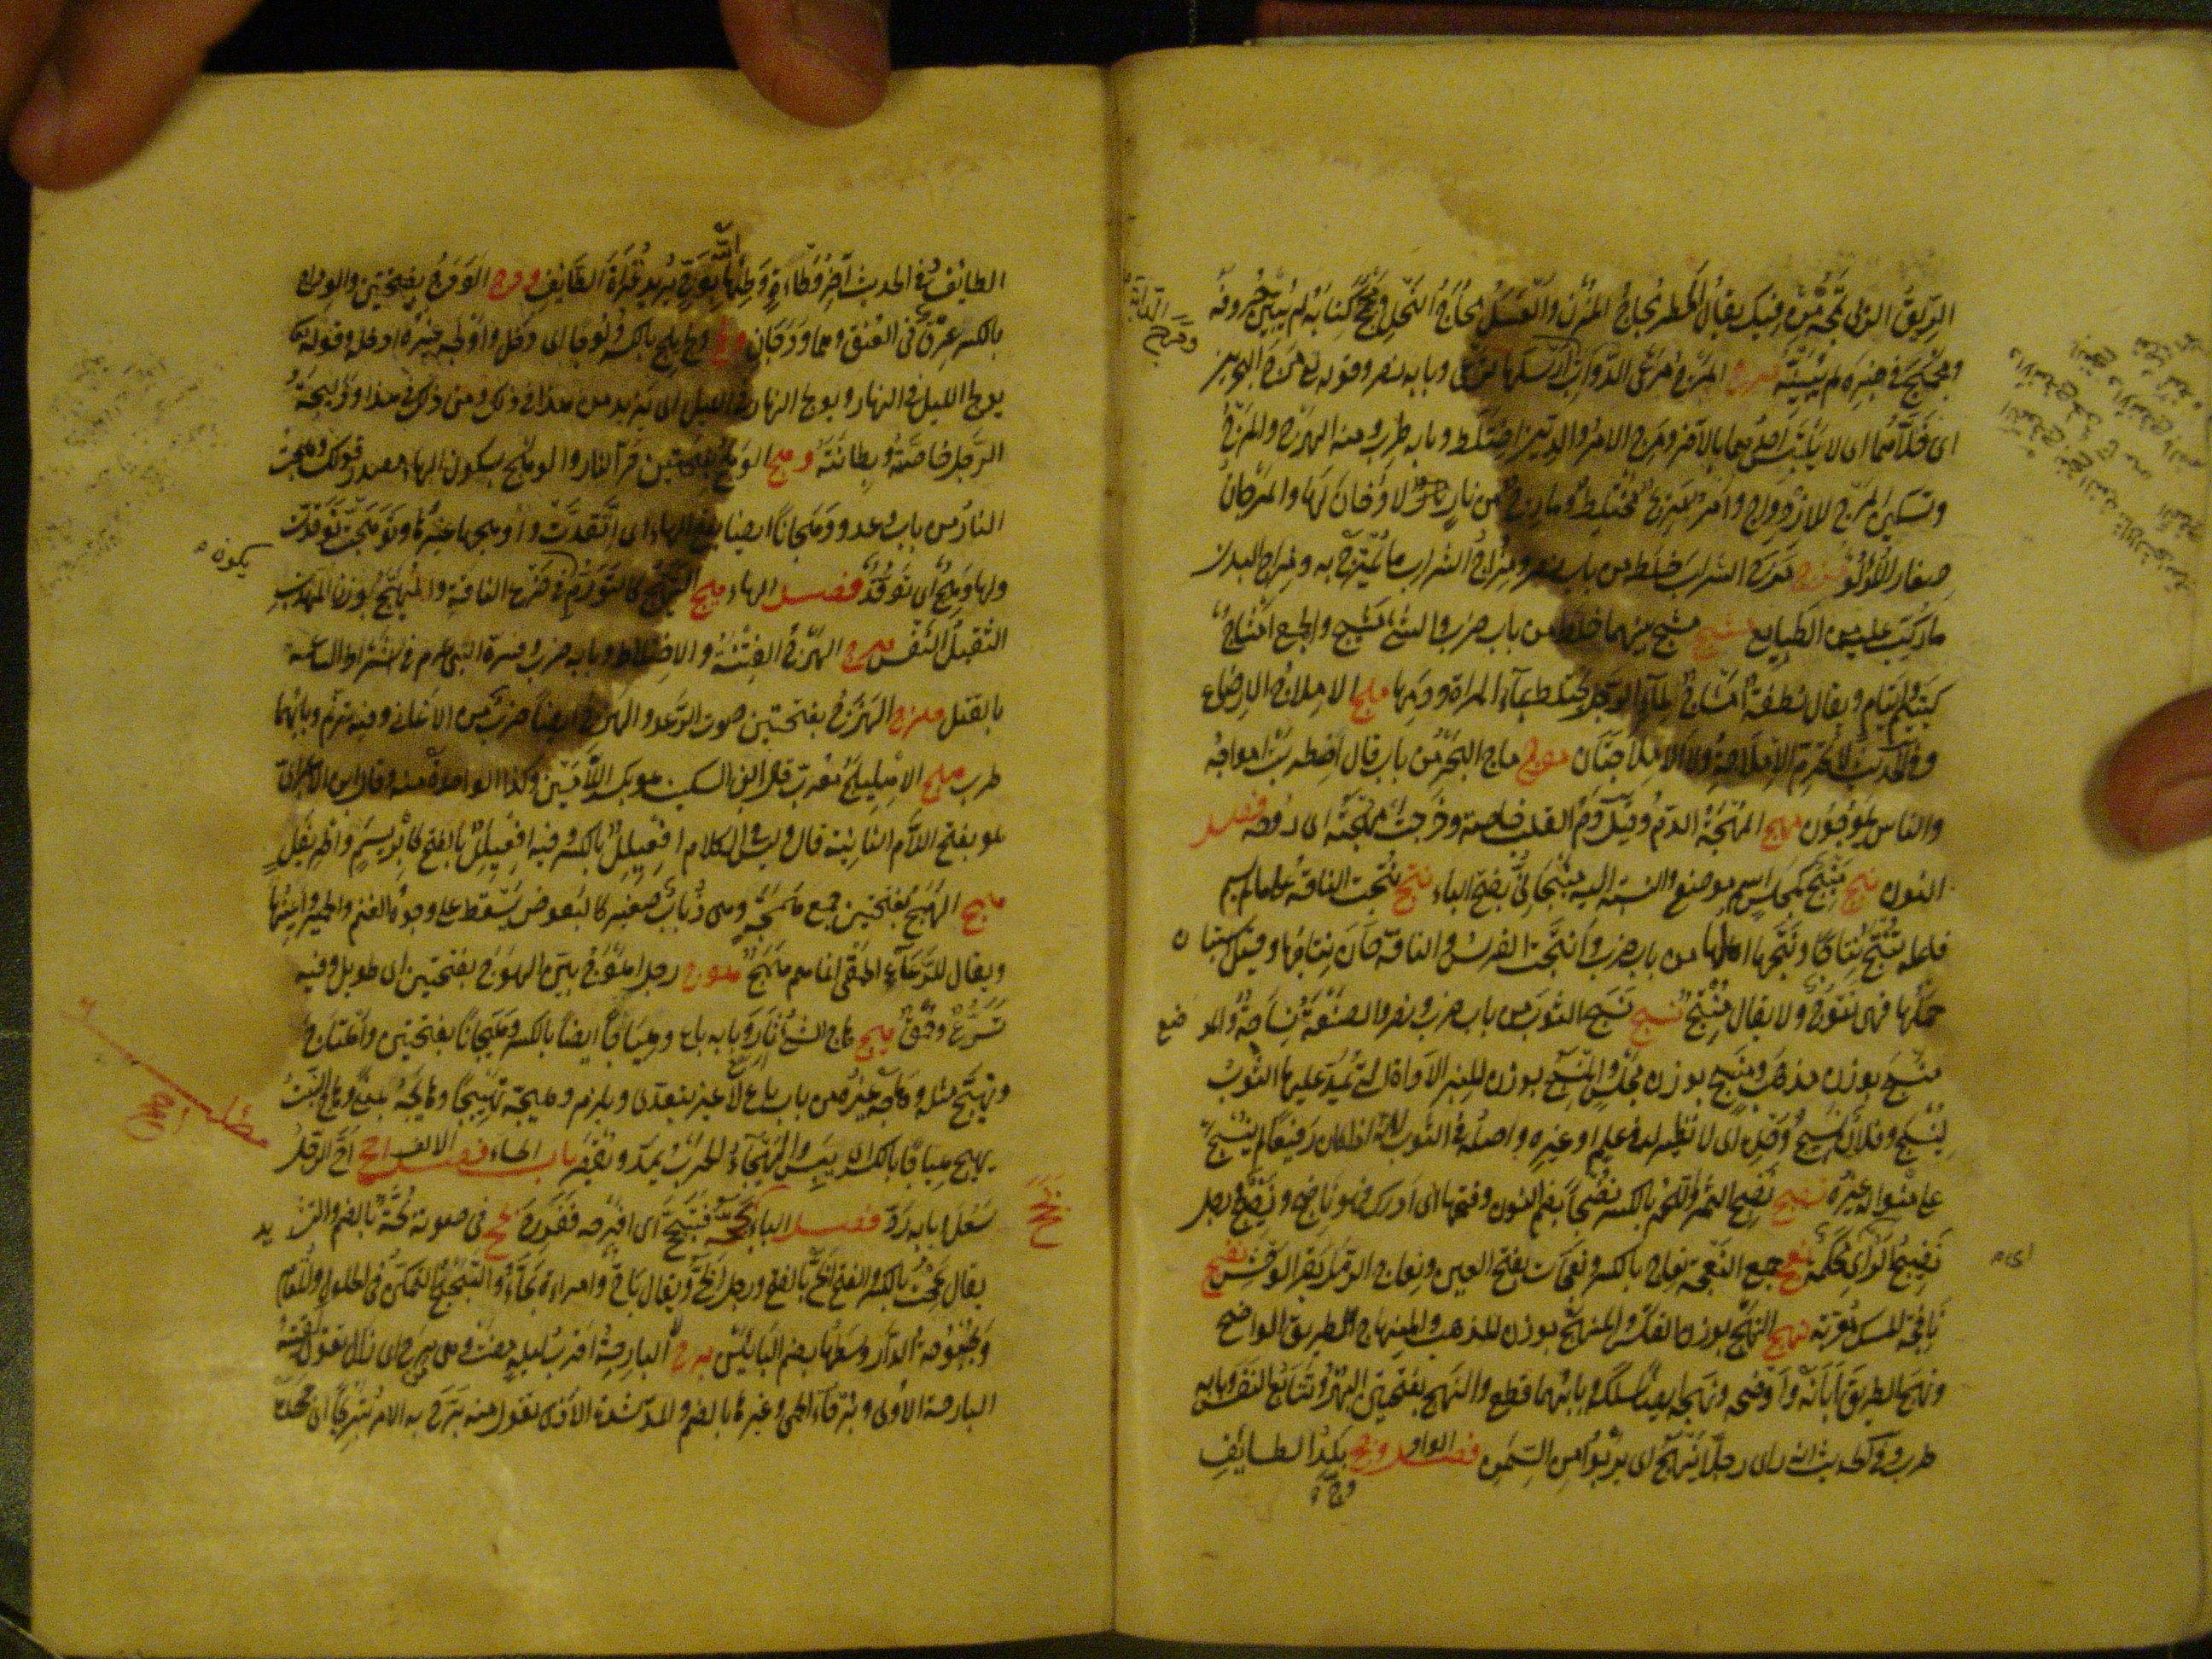 الريق الذى تمجّه من فيك يقال المطر مجاج المزن والعسل مجاج النحل ومجمج كتابه لم يبين حروفه
ومجمج فى خبره لم يبينه مرج المرج مرعى الدواب ومرج الدابة ارسلها ترعى وبابه نصر وقوله تعالى مرج البحرين
اى خلاهما اى لا يلتبس احدهما بالآخر ومرج الامر والدين اختلط وبابه طرب ومنه الهرج والمرج
وتسكين المرج للازدواج وامر مريج مختلط ومارج من نار نار لا دخان لها والمرجان
صغار اللؤلؤ مزج مزج الشراب خلطه من باب نصر ومزاج الشراب ما يمتزج به ومزاج البدن
ما ركب عليه من الطبايع مشج مشج بينهما خلط من باب ضرب والشئ مشيج والجمع امشاج
كيتيم وايتام ويقال نطفة امشاج لماء الرجل يختلط بماء المراة ودمها ملج الاملاج الارضاع
وفى الحديث لا تحرم الاملاجة ولا الاملاجتان موج ماج البحر من باب قال اضطربت امواجه
والناس يموجون مهج المهجة الدم وقيل دم القلب خاصة وخرجت مهجته اى روحه فصل
النون نبج منبج كمجلس اسم موضع والنسبة اليه منبجانىّ بفتح الباء نتج نتجت الناقة على ما لم يسم
فاعله تنتج نتاجا ونتجها اهلها من باب ضرب وانتجت الفرس والناقة حان نتاجها وقيل استبان
حملها فهى نتوج ولا يقال منتج نسج نسج الثوب من باب ضرب ونصر والصنعة نساجة والموضع
منسج بوزن مذهب ومنسج بوزن مجلس والمنسج بوزن المنبر الاداة التى يمد عليها الثوب
لينسج وفلان نسيج وحده اى لا نظير له فى علم او غيره واصله فى الثوب لانه اذا كان رفيعا لم ينسج
على منواله غيره نضج نضج الثمر واللحم بالكسر نضجا بضم النون وفتحها اى ادرك فهو ناضج ونضيج ورجل
نضيج الراى محكمه نعج جمع النعجة نعاج بالكسر ونعجات بفتح العين ونعاج الرمل بقر الوحش نفج
نافجة المسك معربة نهج النهج بوزن الفلس والمنهج بوزن المذهب والمنهاج الطريق الواضح
ونهج الطريق ابانه واوضحه ونهجه ايضا سلكه وبابهما قطع والنهج بفتحتين البهر وتتابع النفس وبابه
طرب وفى الحديث انه راى رجلا ينهج اى يربو من السمن فصل الواو وجج بلد الطايف
وجّ
الطائف وفى الحديث آخر وطاءة وطئها الله بوج يريد غزاة الطايف ودج الودج بفتحتين والوداج
بالكسر عرق فى العنق وهما ودجان ولج ولج يلج بالكسر ولوجا اى دخل واولجه غيره ادخله وقوله تعالى
يولج الليل فى النهار ويولج النهار فى الليل اى يزيد من هذا فى ذلك ومن ذلك فى هذا ووليجة
الرجل خاصته وبطانته وهج الوهج بفتحتين حر النار والوهج بسكون الهاء مصدر قولك وهجت
النار من باب وعد ووهجانا ايضا بفتح الهاء اى اتقدت واوهجها غيرها وتوهجت توقدت
ولها وهيج اى توقد فصل الهاء هبج التهبج كالتورم فى ضرع الناقة والمهبج بوزن المهذب
الثقيل النفس هرج الهرج الفتنة والاختلاط وبابه ضرب وفسره النبى عم فى اشراط الساعة
بالقتل هزج الهزج بفتحتين صوت الرعد والهزج ايضا ضرب من الاغانى وفيه ترنم وبابهما
طرب هلج الاهليلج معرب قال ابن السكيت هو بكسر اللامين وكذا الواحدة منه وقال ابن الاعرابى
هو بفتح اللام الثانية قال وليس فى الكلام افعيلل بالكسر وفيه افعيلل بالفتح كابريسم واطريفل
همج الهمج بفتحتين جمع همجة وهى ذباب صغير كالبعوض يسقط على وجوه الغنم والحمير واعينها
ويقال للرعاع الحمقى انما هم همج هوج رجل اهوج بين الهوج بفتحتين اى طويل وفيه
تسرع وحمق هيج هاج الشئ ثار وبابه باع وهياجا ايضا بالكسر وهيجانا بفتحتين واهتاج
وتهيج مثله وهاجه غيره من باب باع لا غير يتعدى ويلزم وهيجه تهييجا وهايجه بمعنى وهاج النبت
يهيج هياجا بالكسر اى يبس والهيجاء الحرب يمد ويقصر باب الحاء فصل الالف احح اح الرجل
سعل وبابه رد فصل الباء بجح بجحه فتبجح اى افرحه ففرح بحح فى صوته بحة بالضم والتشديد
يقال بححت بالكسر والفتح ابح بالفتح ورجل ابح ولا يقال باح وامراة بحاء والتبحبح التمكن فى الحلول والمقام
وبحبوحة الدار وسطها بضم البائين برح البارحة اقرب ليلة مضت وهى من برح اى زال تقول لقيته
البارحة الاولى وبرحاء الحمى وغيرها بالضم والمد شدة الاذى تقول منه برح به الامر تبريحا اى جهده